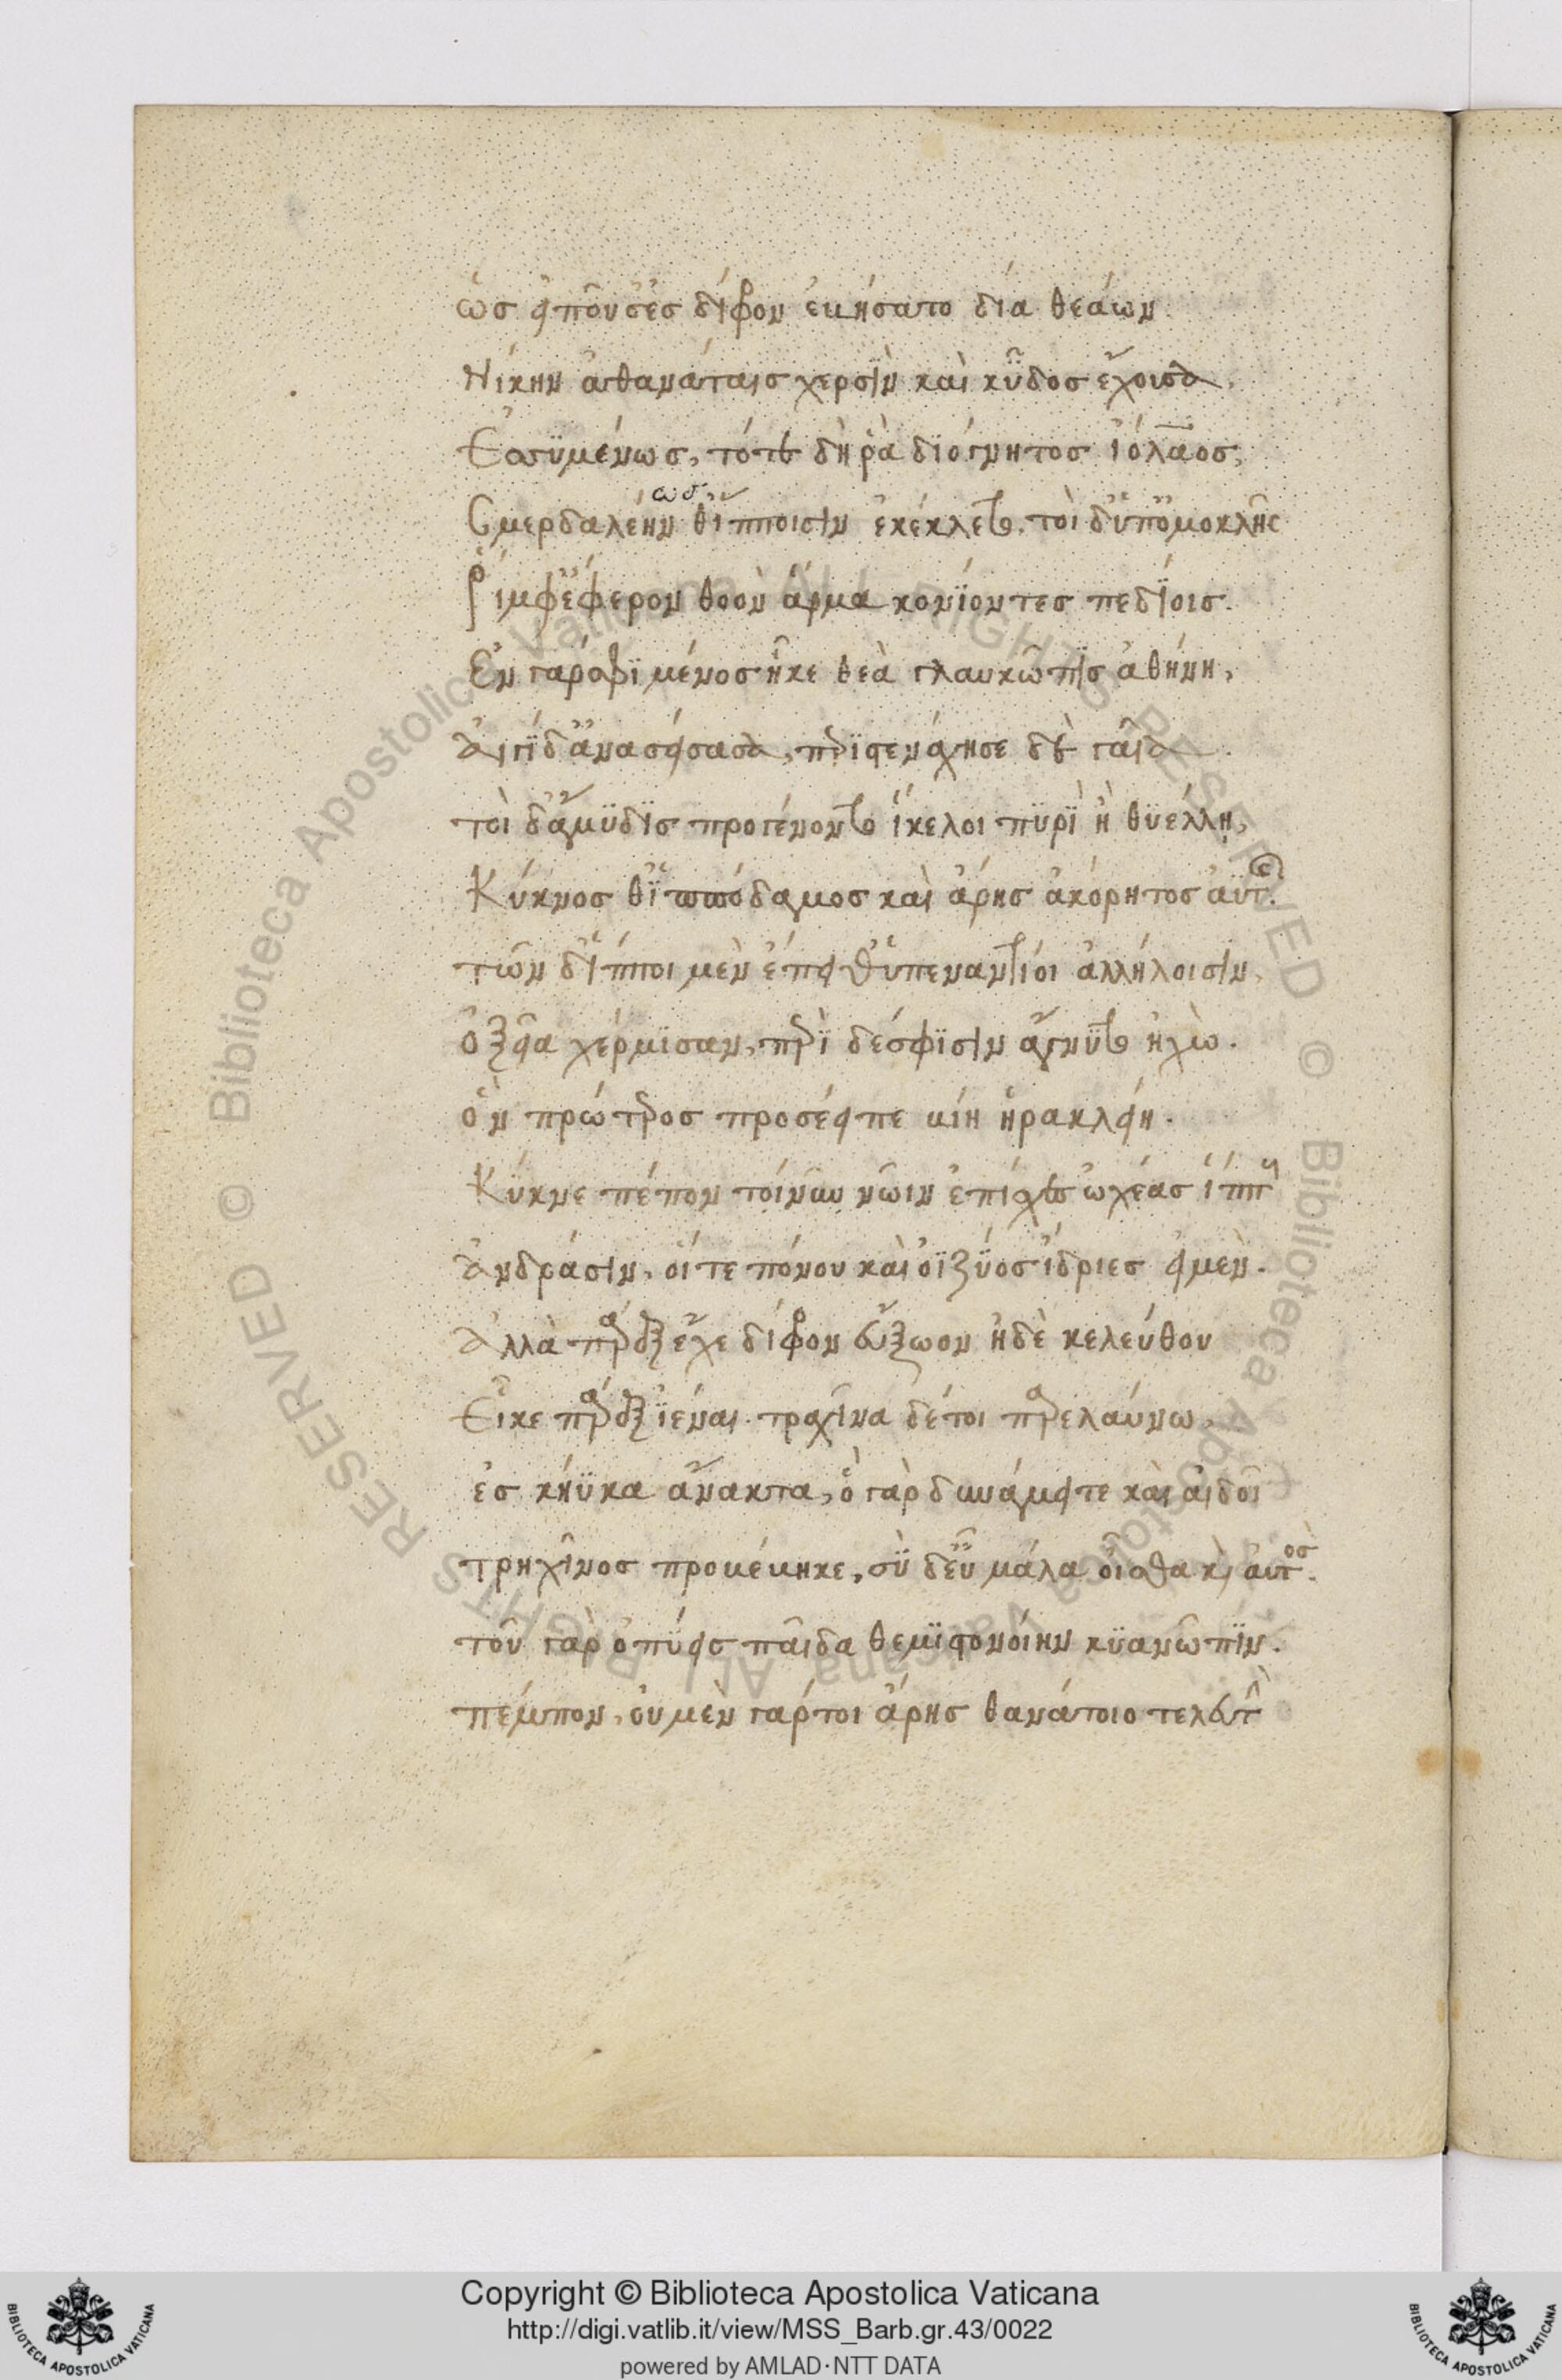 ὡσ εἰποῦσ ἐσ δίφρον ἐβήσατο δῖα θεάων
Νίκην ἀθανάταισ χερσὶν καὶ κῦδοσ ἔχουσα.
Ἐσσυμένωσ, τότε δή ῥα διόγνητοσ ἰόλαοσ,
Σμερδαλέην θ ἵπποισιν ἐκέκλετο. τοὶ δ ὑπ ὁμοκλῆς
ωσ
Ῥίμφ ἔφερον θοὸν ἅρμα κονίοντεσ πεδίοισ.
Ἐν γάρ σφι μένοσ ἧκε θεὰ γλαυκῶπισ ἀθήνη,
Αἰγίδ ἀνασείσασα, περιστενάχησε δὲ γαῖα.
τοὶ δ ἄμυδισ προγένοντο ἴκελοι πυρὶ ἠὲ θυέλλῃ,
Κύκνοσ θ ἱππόδαμοσ καὶ ἄρησ ἀκόρητοσ ἀϋτῆς.
τῶν δ ἵπποι μὲν ἔπειθ ὑπεναντίοι ἀλλήλοισιν,
ὀξεῖα χρέμισαν, περὶ δέ σφισιν ἄγνυτο ἠχώ.
ὃν πρότεροσ προσέειπε βίη ἡρακλείη.
Κύκνε πέπον τοί νυ νῶιν ἐπίσχετε ὠκέασ ἵππουσ
Ἀνδράσιν, οἵ τε πόνου καὶ ὀϊζύοσ ἴδριεσ εἰμὲν.
Ἀλλὰ παρὲξ ἔχε δίφρον ἐΰξοον ἠδὲ κελεύθου
Εἶκε παρὲξ ἰέναι. τραχῖνα δέ τοι παρελαύνω,
ἐσ κήϋκα ἄνακτα, ὃ γὰρ δυνάμει τε καὶ αἰδοῖ
τρηχῖνοσ προβέβηκε, σὺ δ εὖ μάλα οἶσθα καὶ αὐτόσ.
τοῦ γὰρ ὀπύεισ παῖδα θεμιστονόην κυανῶπιν.
πέμπον, οὐ μὲν γάρ τοι ἄρησ θανάτοιο τελευτὴν
Copyright © Biblioteca Apostolica Vaticana
http://digi.vatlib.it/view/MSS_Barb.gr.43/0022
powered by AMLAD·NTT DATA